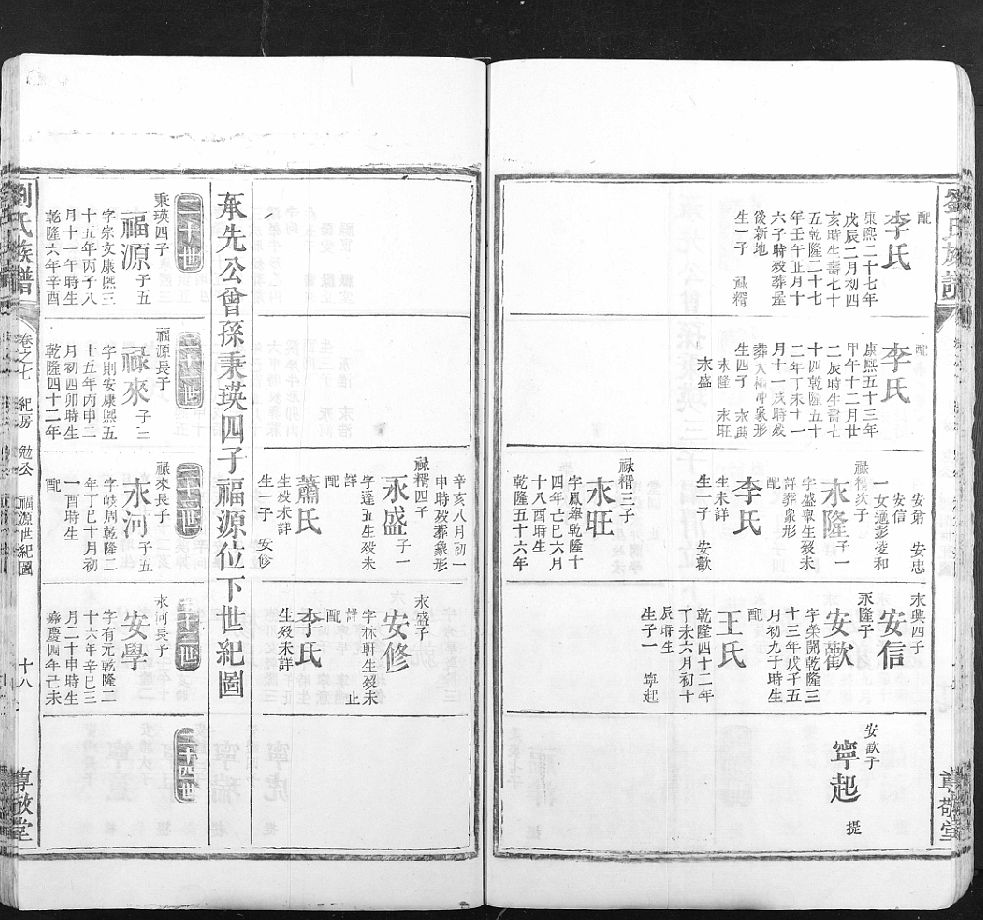 劉氏族譜
配
李氏
康熙二十七年
戊辰二月初四
亥時生壽七十
五乾隆二十七
年壬午正月十
六子時歿葬屋
後新地
生一子 祿糈
配
李氏
康熙五十三年
甲午十二月廿
二辰時生壽七
十四乾隆五十
二年丁未十一
月十一戌時歿
生四子 永興
永隆 永旺
永盛
安弟 安忠
安信
一女適彭凌和
祿糈次子
永隆 子一
字盛舉生歿未
詳葬象形
配
李氏
生未詳
生一子 安歡
祿糈三子
永旺
字鳳舉乾隆十
四年己巳六月
十八酉時生
乾隆五十六年
永興四子
安信
永隆子
安歡
字榮開乾隆三
十三年戊子五
月初九子時生
配
王氏
乾隆四十二年
丁未六月初十
辰時生
生子一 寧起
安歡子
寧起
提
尊敬堂
辛亥八月初一
申時歿葬象形
祿糈四子
永盛 子一
字達五生歿未
詳
配
蕭氏
生歿未詳
生一子 安修
永盛子
安修
字林軒生歿未
詳 止
配
李氏
生歿未詳
承先公曾孫秉瑛四子福源位下世紀圖
二十世
秉瑛四子
福源 子五
字宗文康熙三
十五年丙子八
月十一午時生
乾隆六年辛酉
福源長子
祿來 子三
字則安康熙五
十五年丙申二
月初四卯時生
乾隆四十二年
祿來長子
永河 子五
字岐周乾隆二
年丁巳十月初
一酉時生
配
永河長子
安學
字有元乾隆二
十六年辛巳三
月二十申時生
嘉慶四年己未
二十四世
劉氏族譜
卷之七 紀房 勉公 福源世紀圖
十八
尊敬堂